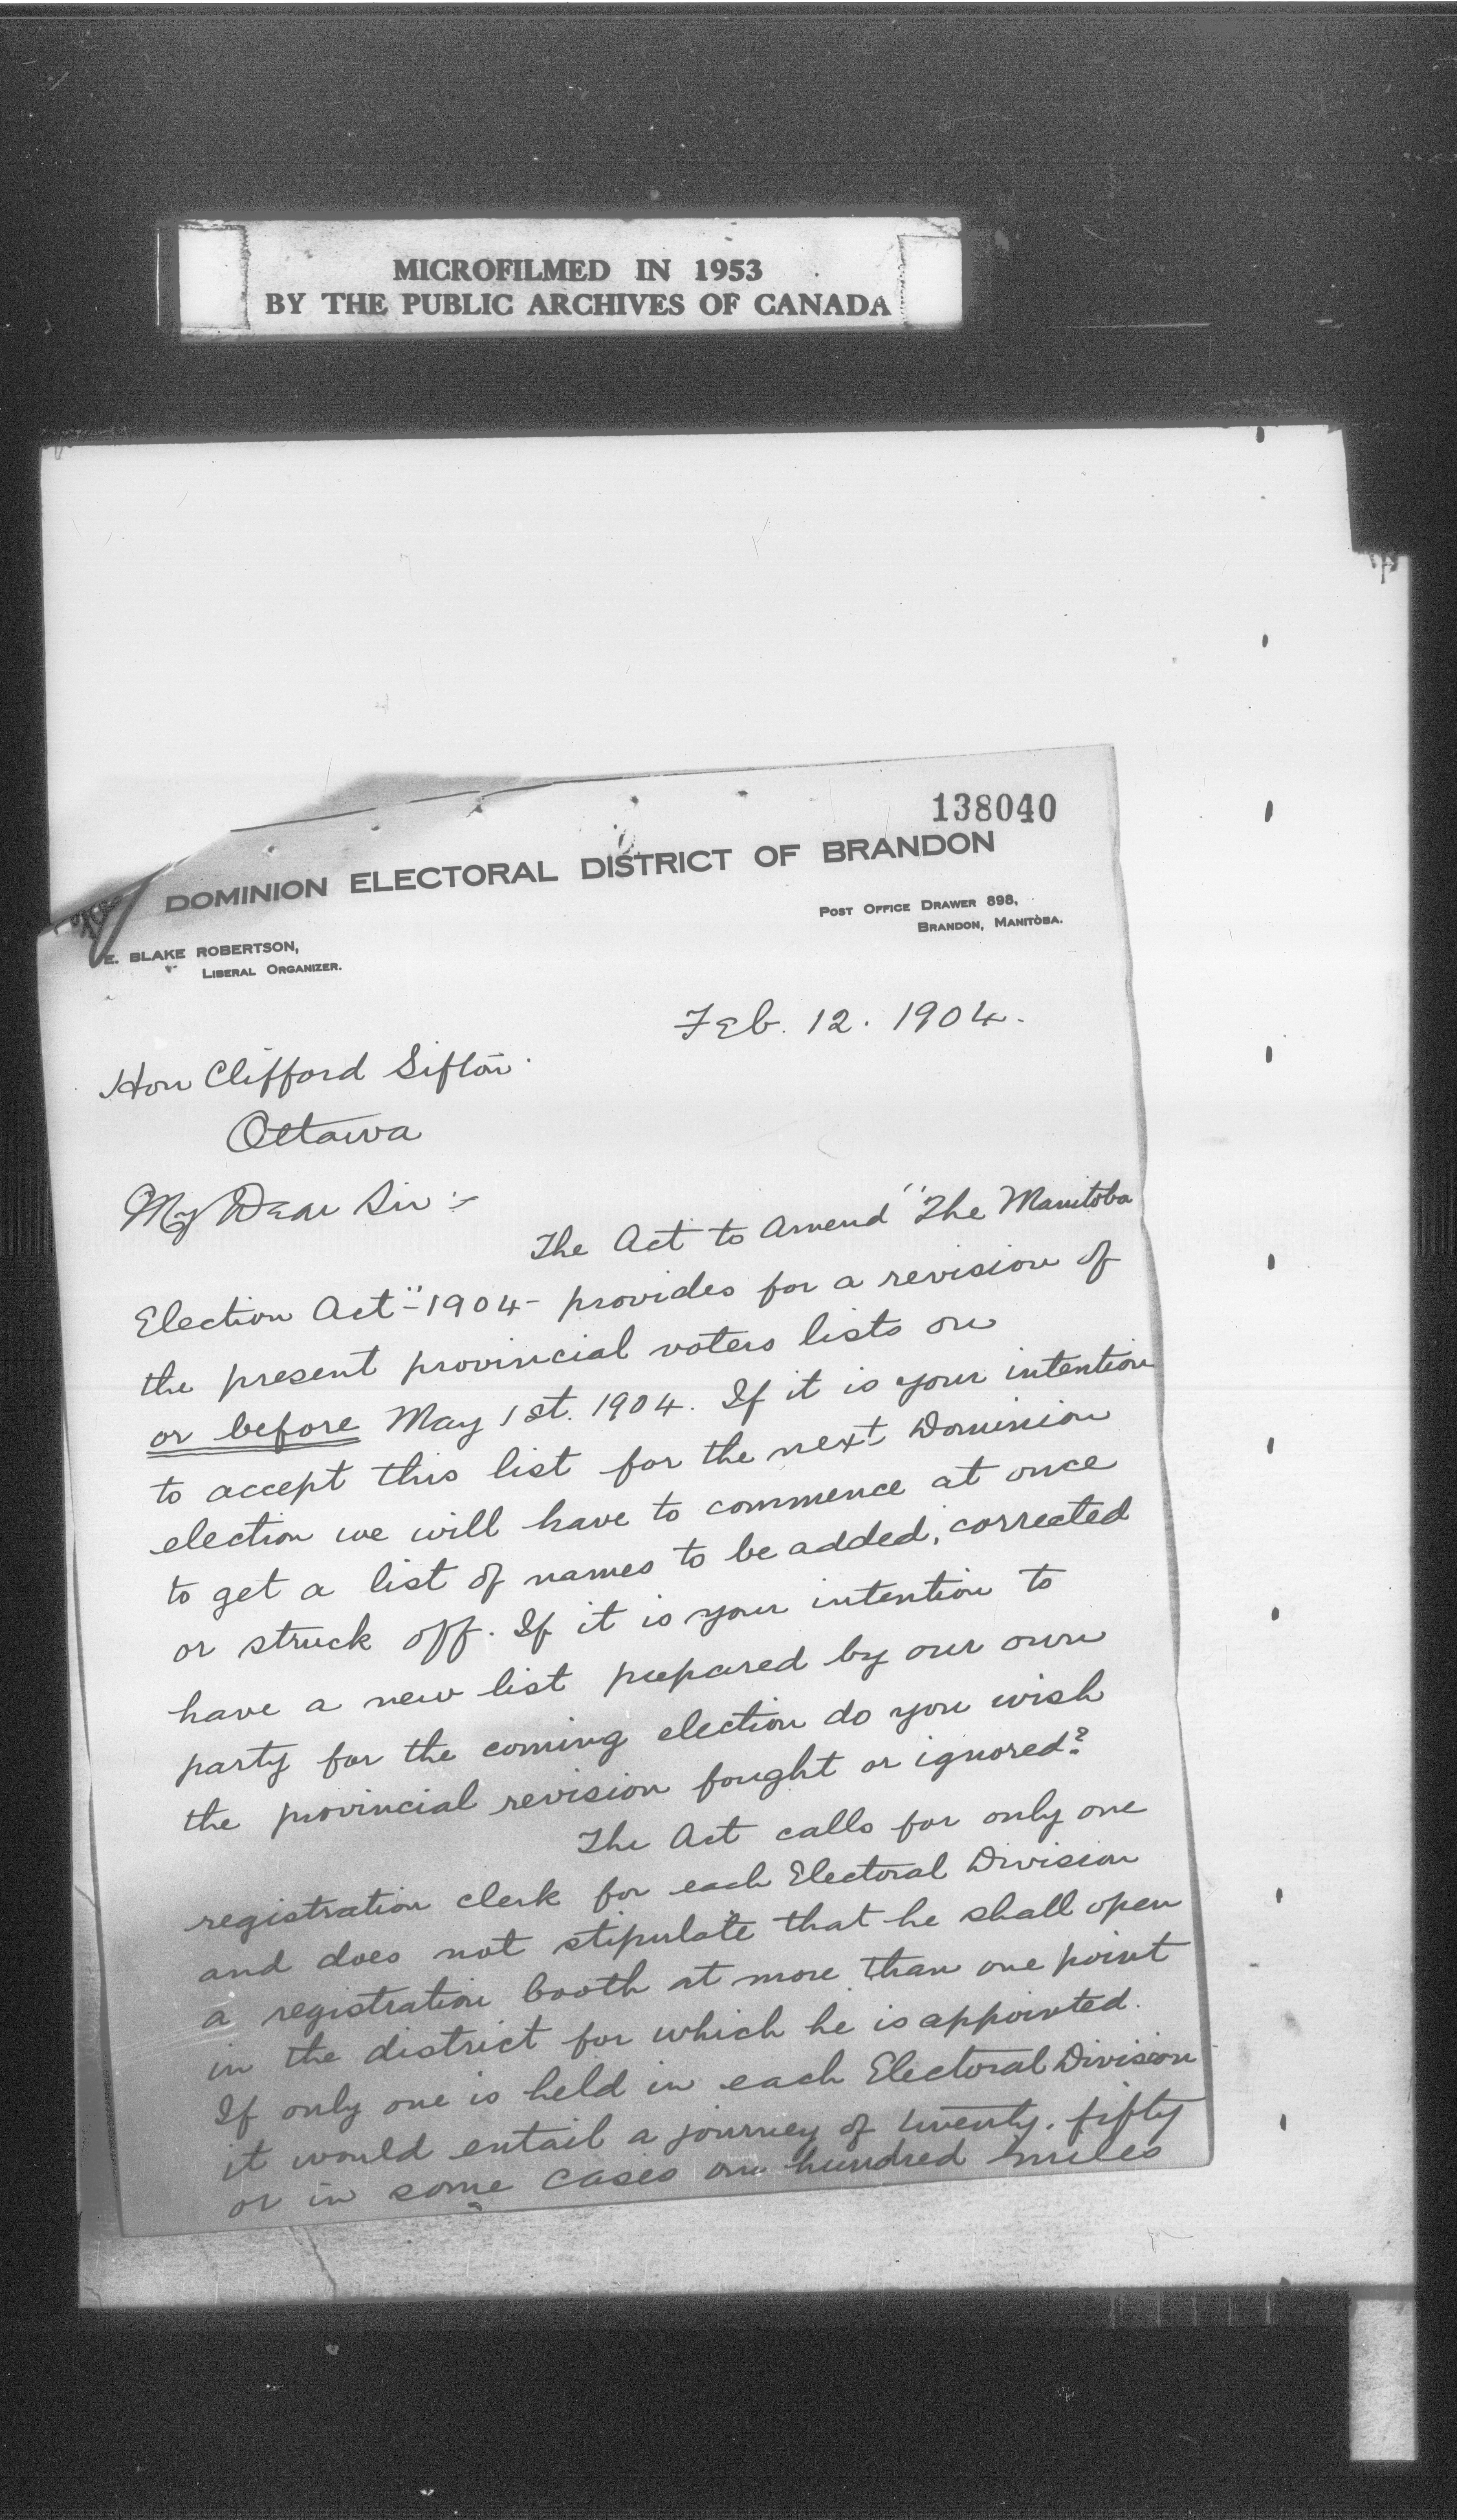 MICROFILMED IN 1953
BY THE PUBLIC ARCHIVES OF CANADA
138040
DOMINION ELECTORAL DISTRICT OF BRANDON
POST OFFICE DRAWER 898,
BRANDON, MANITOBA.
E. BLAKE ROBERTSON,
LIBERAL ORGANIZER.
Feb. 12. 1904.
Hon Clifford Sifton.
Ottawa
My Dear Sir :-
The Act to Amend "The Manitoba
Election Act"-1904- provides for a revision of
the present provincial voters lists on
or before May 1st. 1904. If it is your intention
to accept this list for the next Dominion
election we will have to commence at once
to get a list of names to be added, corrected
or struck off. If it is your intention to
have a new list prepared by our own
party for the coming election do you wish
the provincial revision fought or ignored?
The Act calls for only one
registration clerk for each Electoral Division
and does not stipulate that he shall open
a registration booth at more than one point
in the district for which he is appointed.
If only one is held in each Electoral Division
it would entail a journey of twenty, fifty
or in some cases one hundred miles